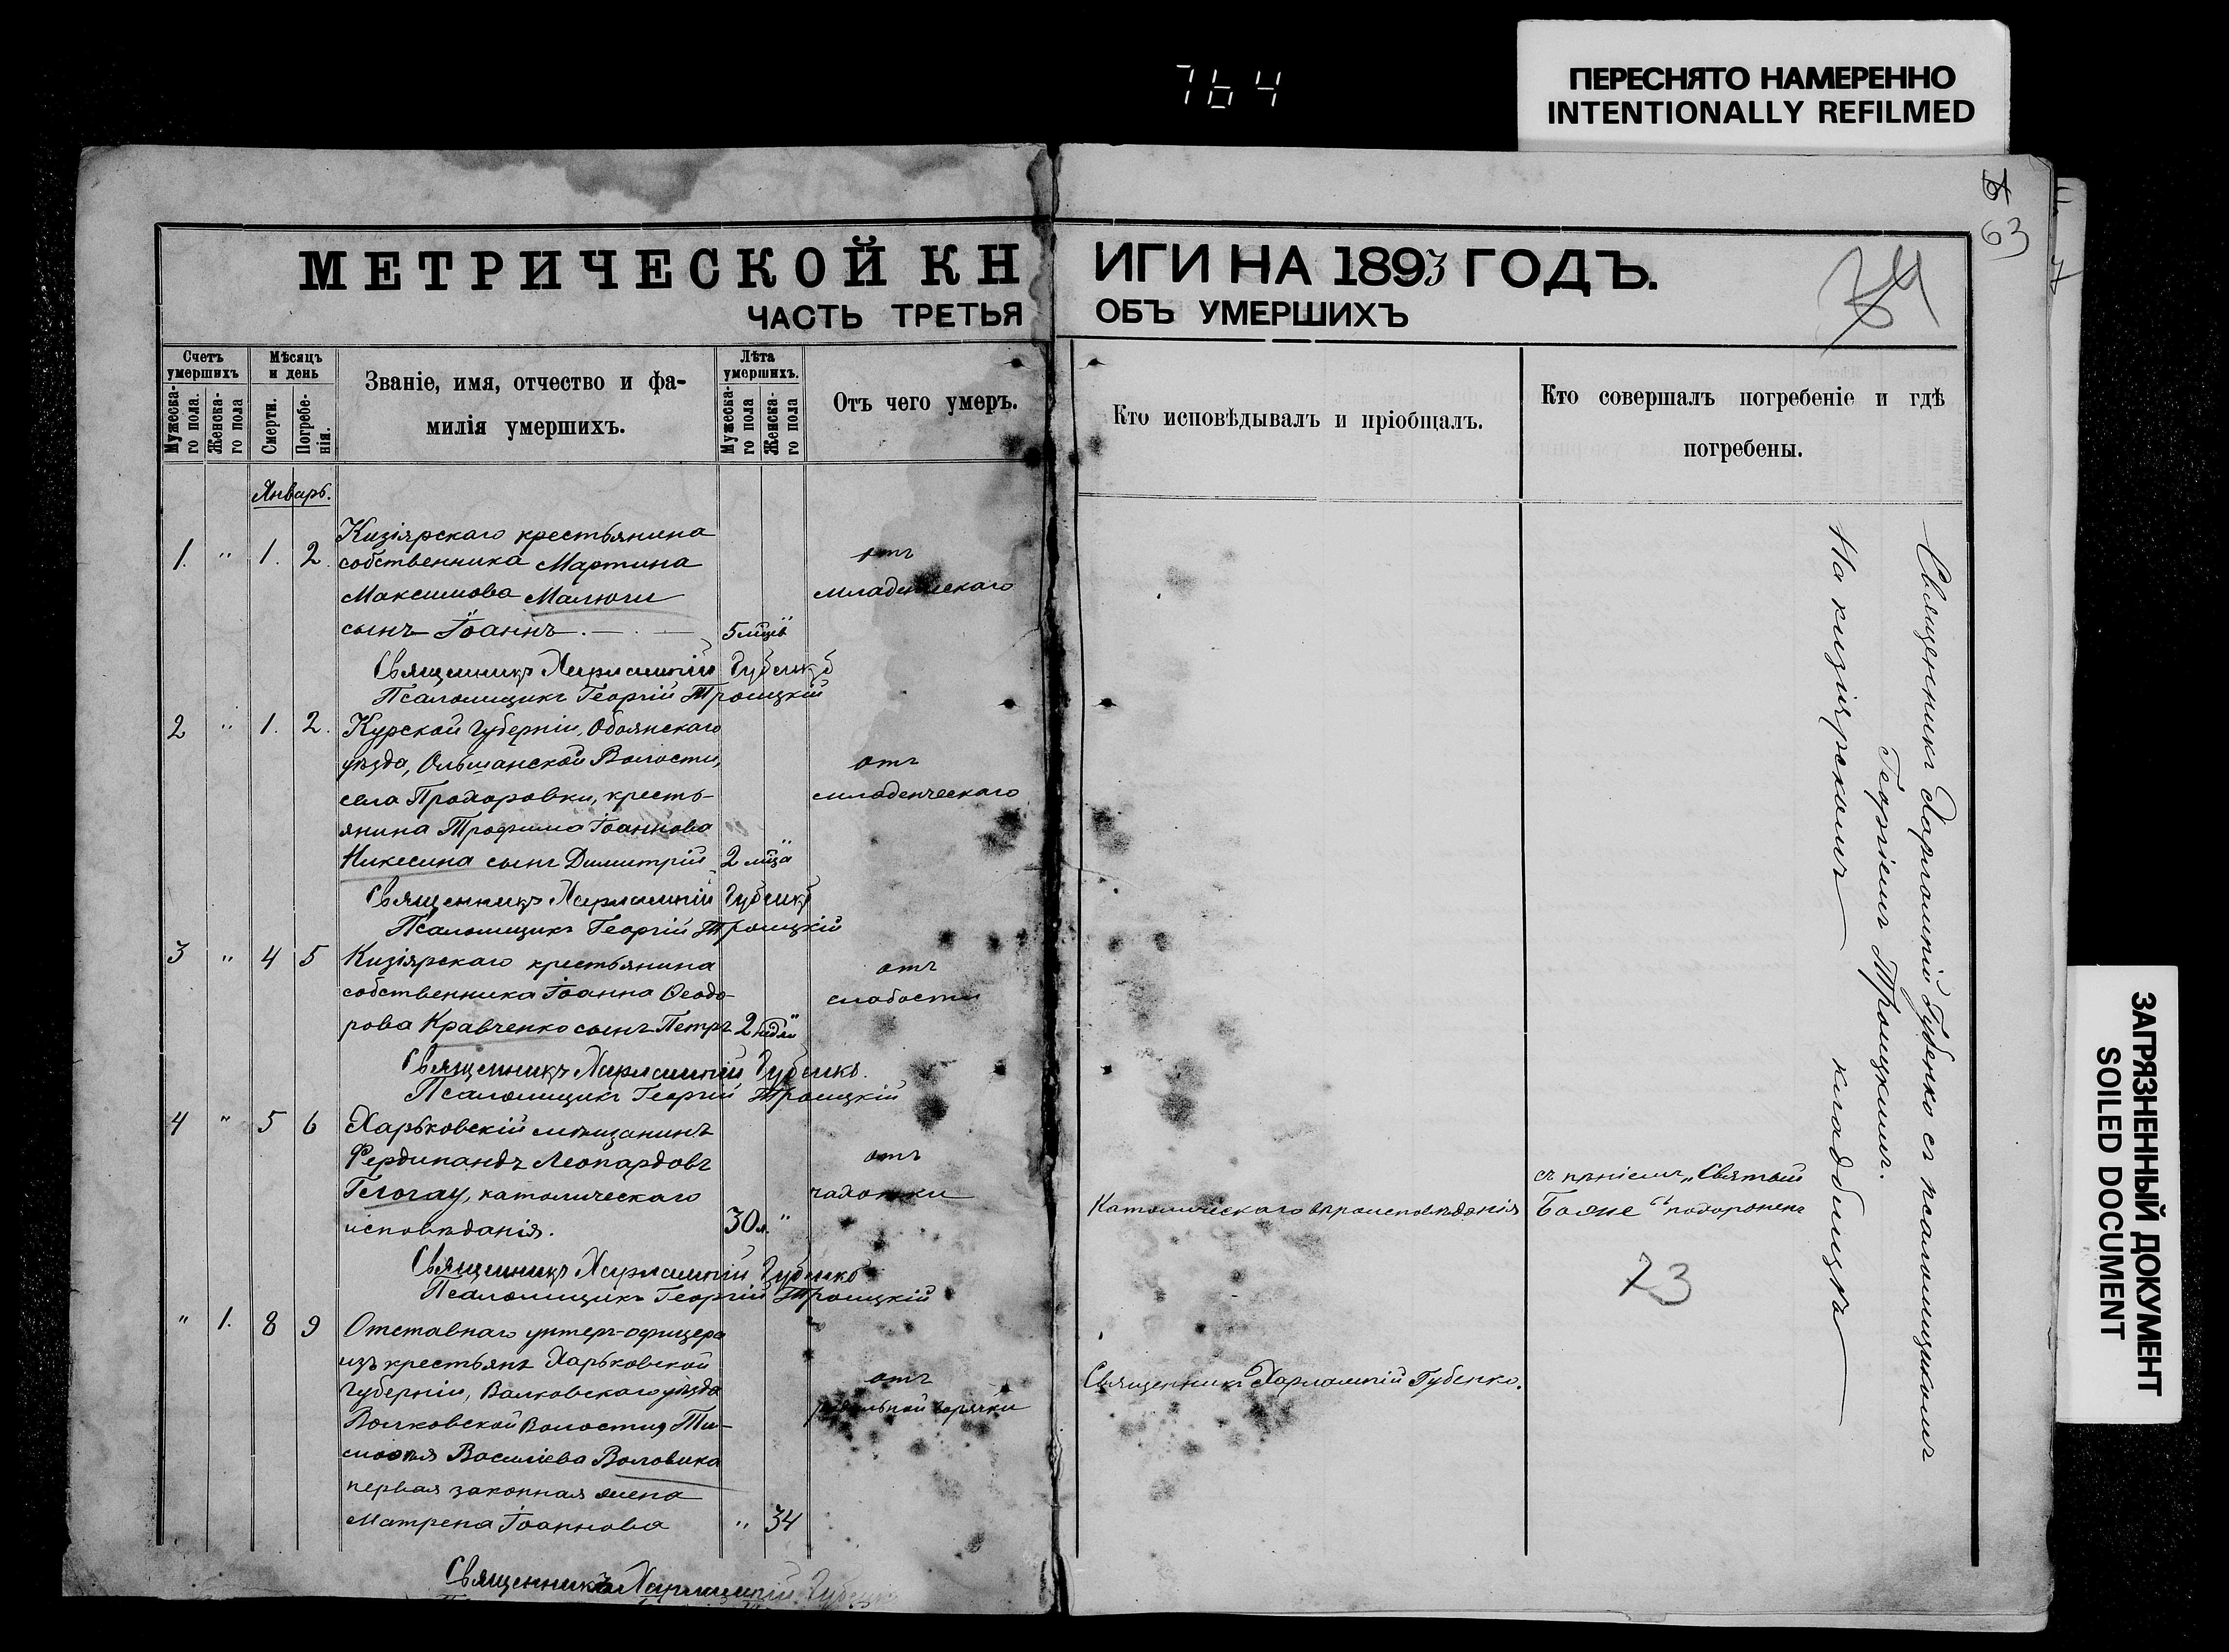 764
ПЕРЕСНЯТО НАМЕРЕННО
INTENTIONALLY REFILMED
63
МЕТРИЧЕСКОЙ КН
ИГИ НА 1893 ГОДЪ.
ЧАСТЬ ТРЕТЬЯ
ОБЪ УМЕРШИХЪ
Счетъ умершихъ
Мужеска-го пола.
Женска-го пола
Мѣсяцъ и день
Смерти.
Погребе-нія.
Званіе, имя, отчество и фа-
милія умершихъ.
Лѣта умершихъ.
Мужеска-го пола
Женска-го пола
Отъ чего умеръ.
Кто исповѣдывалъ и пріобщалъ.
Кто совершалъ погребеніе и гдѣ
погребены.
Январь.
1. " 1. 2.
Кизіярскаго крестьянина
собственника Мартина
Максимова Малюги
сынъ Іоаннъ.
5 мцев "
отъ
младенческаго
Священникъ Харлампій Губенко
Псаломщикъ Георгій Троицкій
2 " 1. 2.
Курской Губерніи, Обоянскаго
уѣзда, Ольшанской Волости,
села Прохоровки, кресть-
янина Трофима Іоаннова
Никесина сынъ Димитрій
2 мца "
отъ
младенческаго
Священникъ Харлампій Губенко
Псаломщикъ Георгій Троицкій
3 " 4 5
Кизіярскаго крестьянина
собственника Іоанна Ѳеодо-
рова Кравченко сынъ Петръ
2 нѣдѣли "
отъ
слабости
Священникъ Харлампій Губенко.
Псаломщикъ Георгій Троицкій
4 " 5 6
Харьковскій мѣщанинъ
Фердинандъ Леонардовъ
Гелогау, католическаго
исповѣданія.
30 л. "
отъ
чахотки
Католическаго вѣроисповѣданія
съ пѣніемъ „Святый
Боже“ похороненъ
Священникъ Харлампій Губенко
Псаломщикъ Георгій Троицкій
23
" 1. 8 9
Отставнаго унтеръ-офицера
изъ крестьянъ Харьковской
Губерніи, Валковскаго уѣзда
Волости Ти-
моѳея Василіева Воловика
первая законная жена
Матрена Іоаннова
" 34
отъ
родильной горячки
Священникъ Харлампій Губенко.
Священникъ Харлампій
Священникъ Харлампій Губенко съ псаломщикомъ
Георгіемъ Троицкимъ.
На кизіярскомъ кладбищѣ
ЗАГРЯЗНЕННЫЙ ДОКУМЕНТ
SOILED DOCUMENT